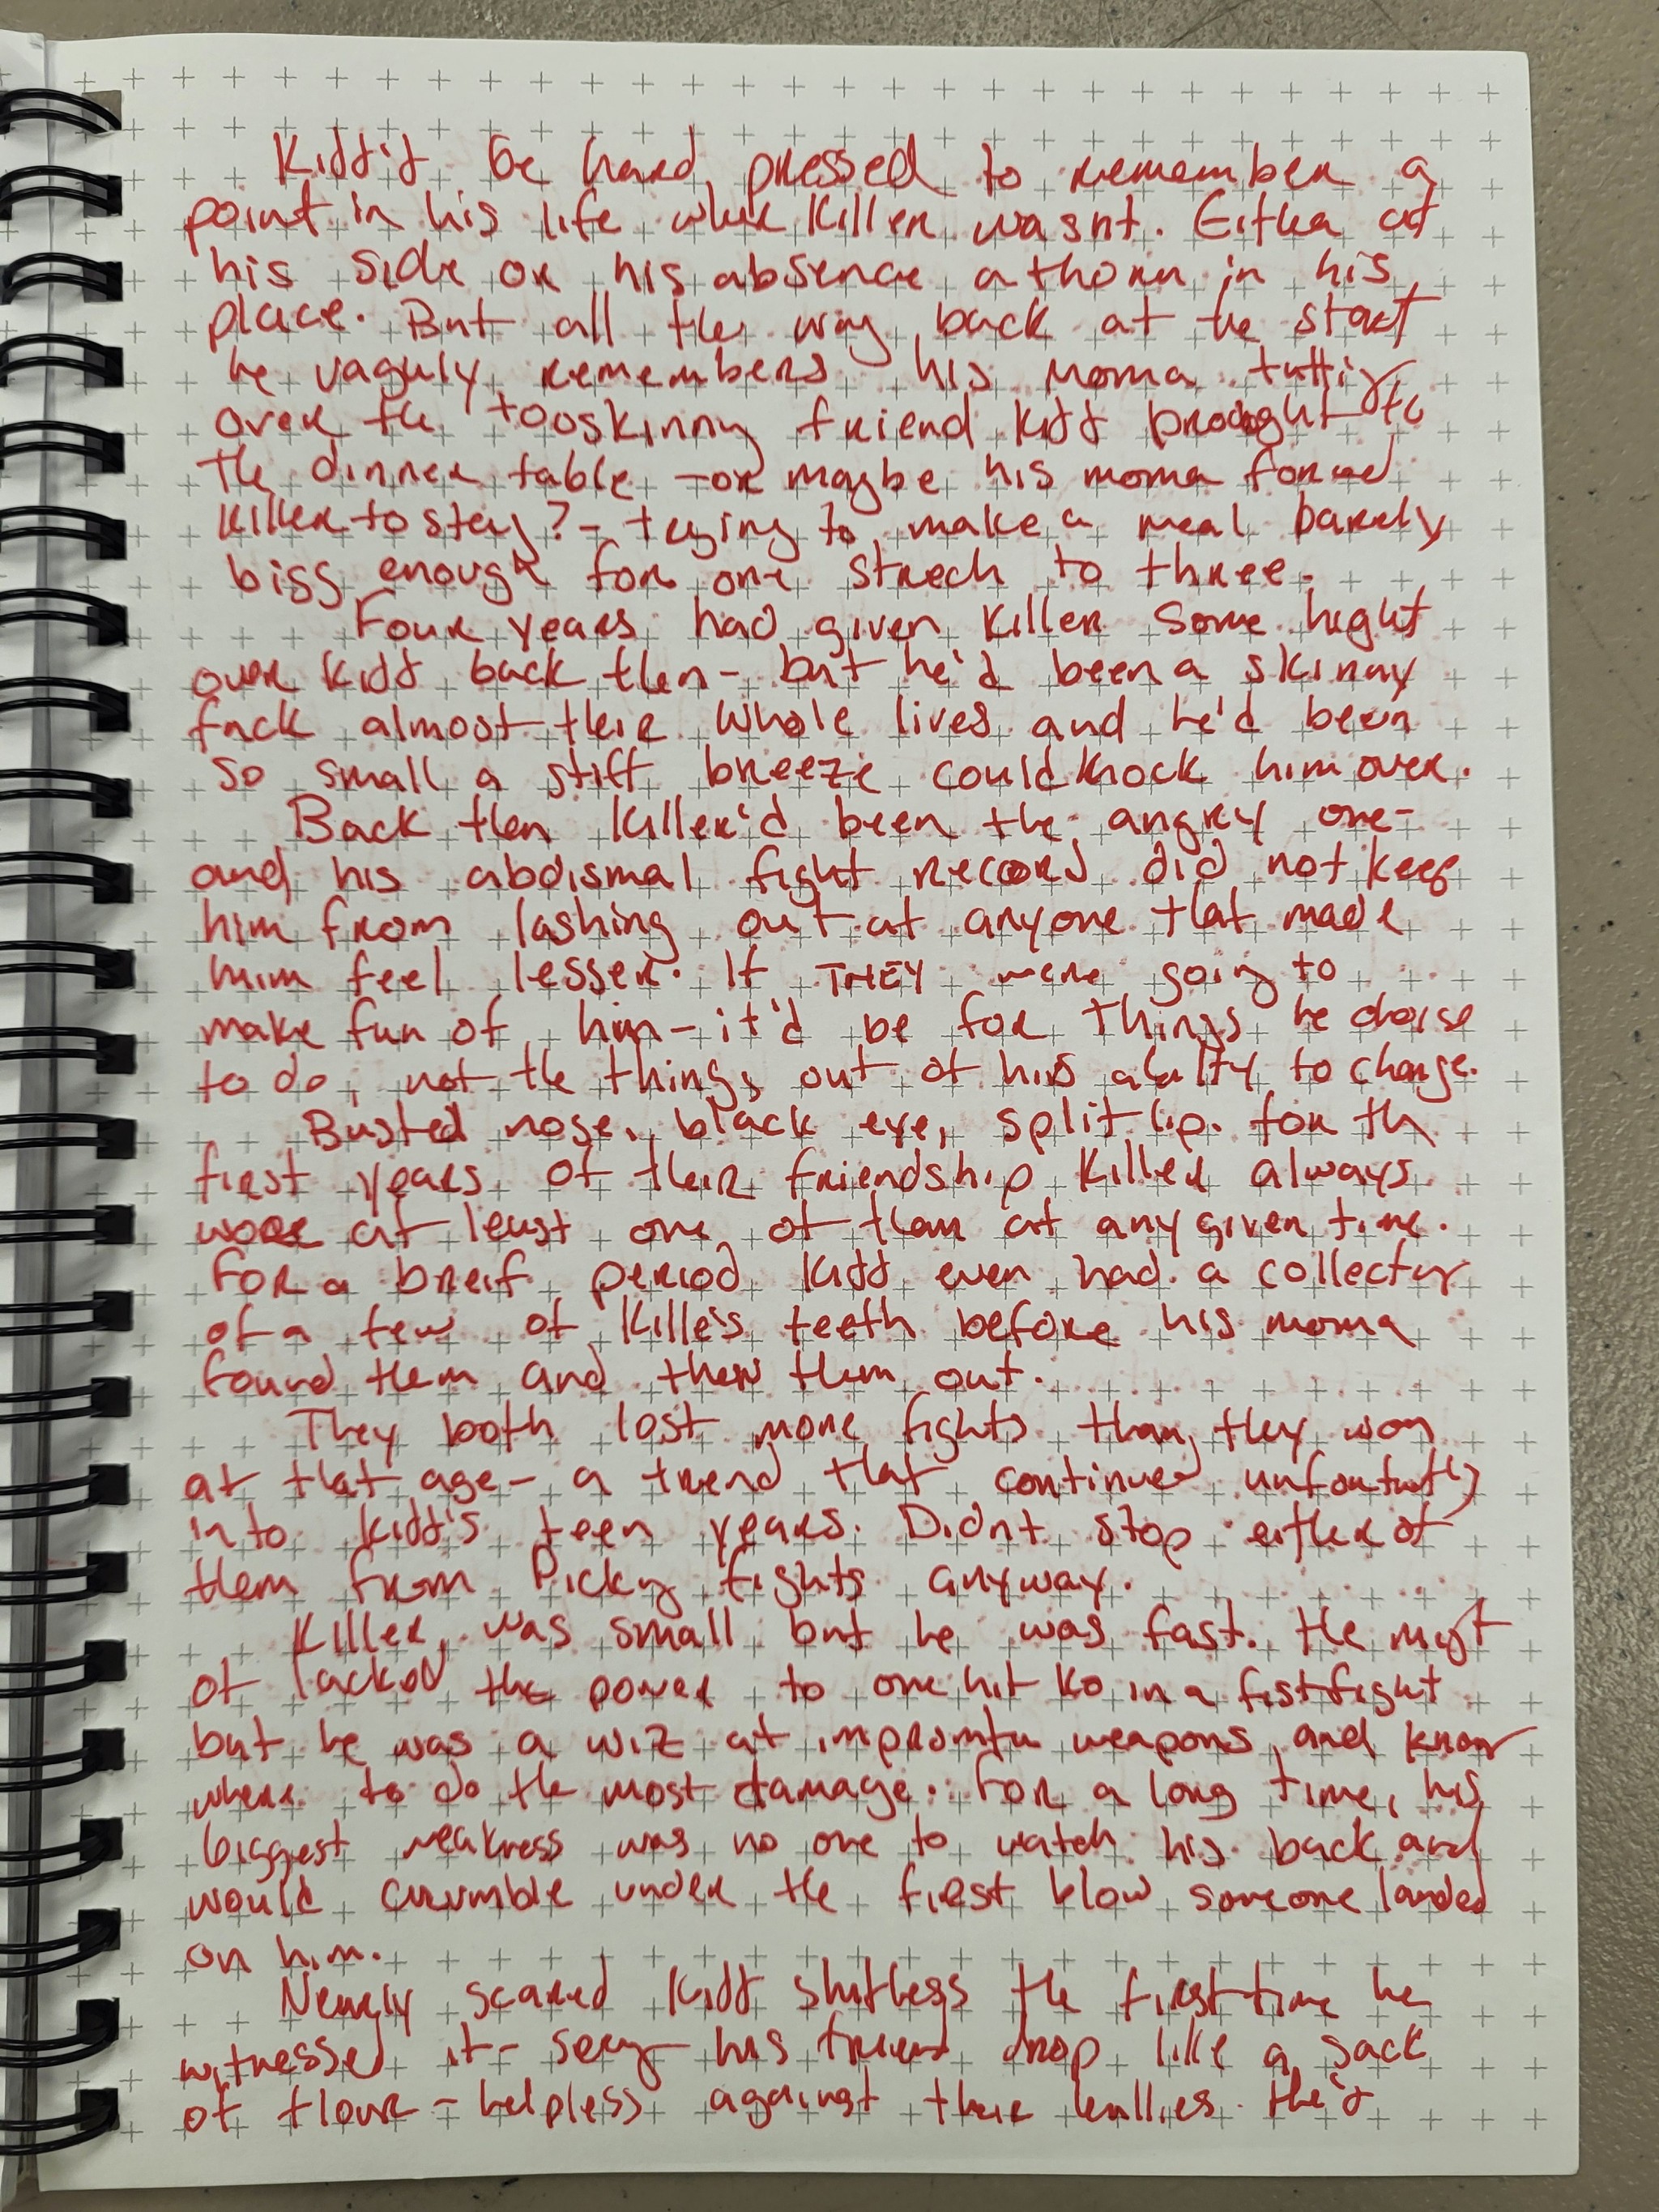 Kidd'd be hard pressed to remember a
point in his life wher Killer wasnt. Either at
his side or his absence a thorn in his
place. But all the way back at the start
he vaguly remembers his moma tutting
over the tooskinny friend Kidd brought to
the dinner table - or maybe his moma forced
Killer to stay? - trying to make a meal barely
bigg enough for one strech to three.
Four years had given Killer some hight
over Kidd back then - but he'd been a skinny
fuck almost their whole lives and he'd been
so small a stiff breeze could knock him over.
Back then Killer'd been the angry one-
and his abdismal fight record did not keep
him from lashing out at anyone that made
him feel lesser. If THEY were going to
make fun of him - it'd be for things he choise
to do, not the things out of his abality to change.
Busted nose, black eye, split lip. for th
first years of their friendship Killer always
wore at least one of them at any given time.
For a breif period Kidd even had a collecton
of a few of Kille's teeth before his moma
found them and thew them out.
They both lost more fights than they won
at that age - a trend that continued unfortunatly
into Kidd's teen years. Didnt stop either of
them from Picky fights anyway.
Killer was small but he was fast. He might
of lacked the power to one hit ko in a fistfight
but he was a wiz at impromtu weapons and know
where to do the most damage. For a long time, his
biggest weakness was no one to watch his back and
would crumble under the first blow someone landed
on him.
Nearly scared Kidd shitless the first time he
witnessed it - seeing his friend drop like a sack
of flour - helpless against their bullies. He'd